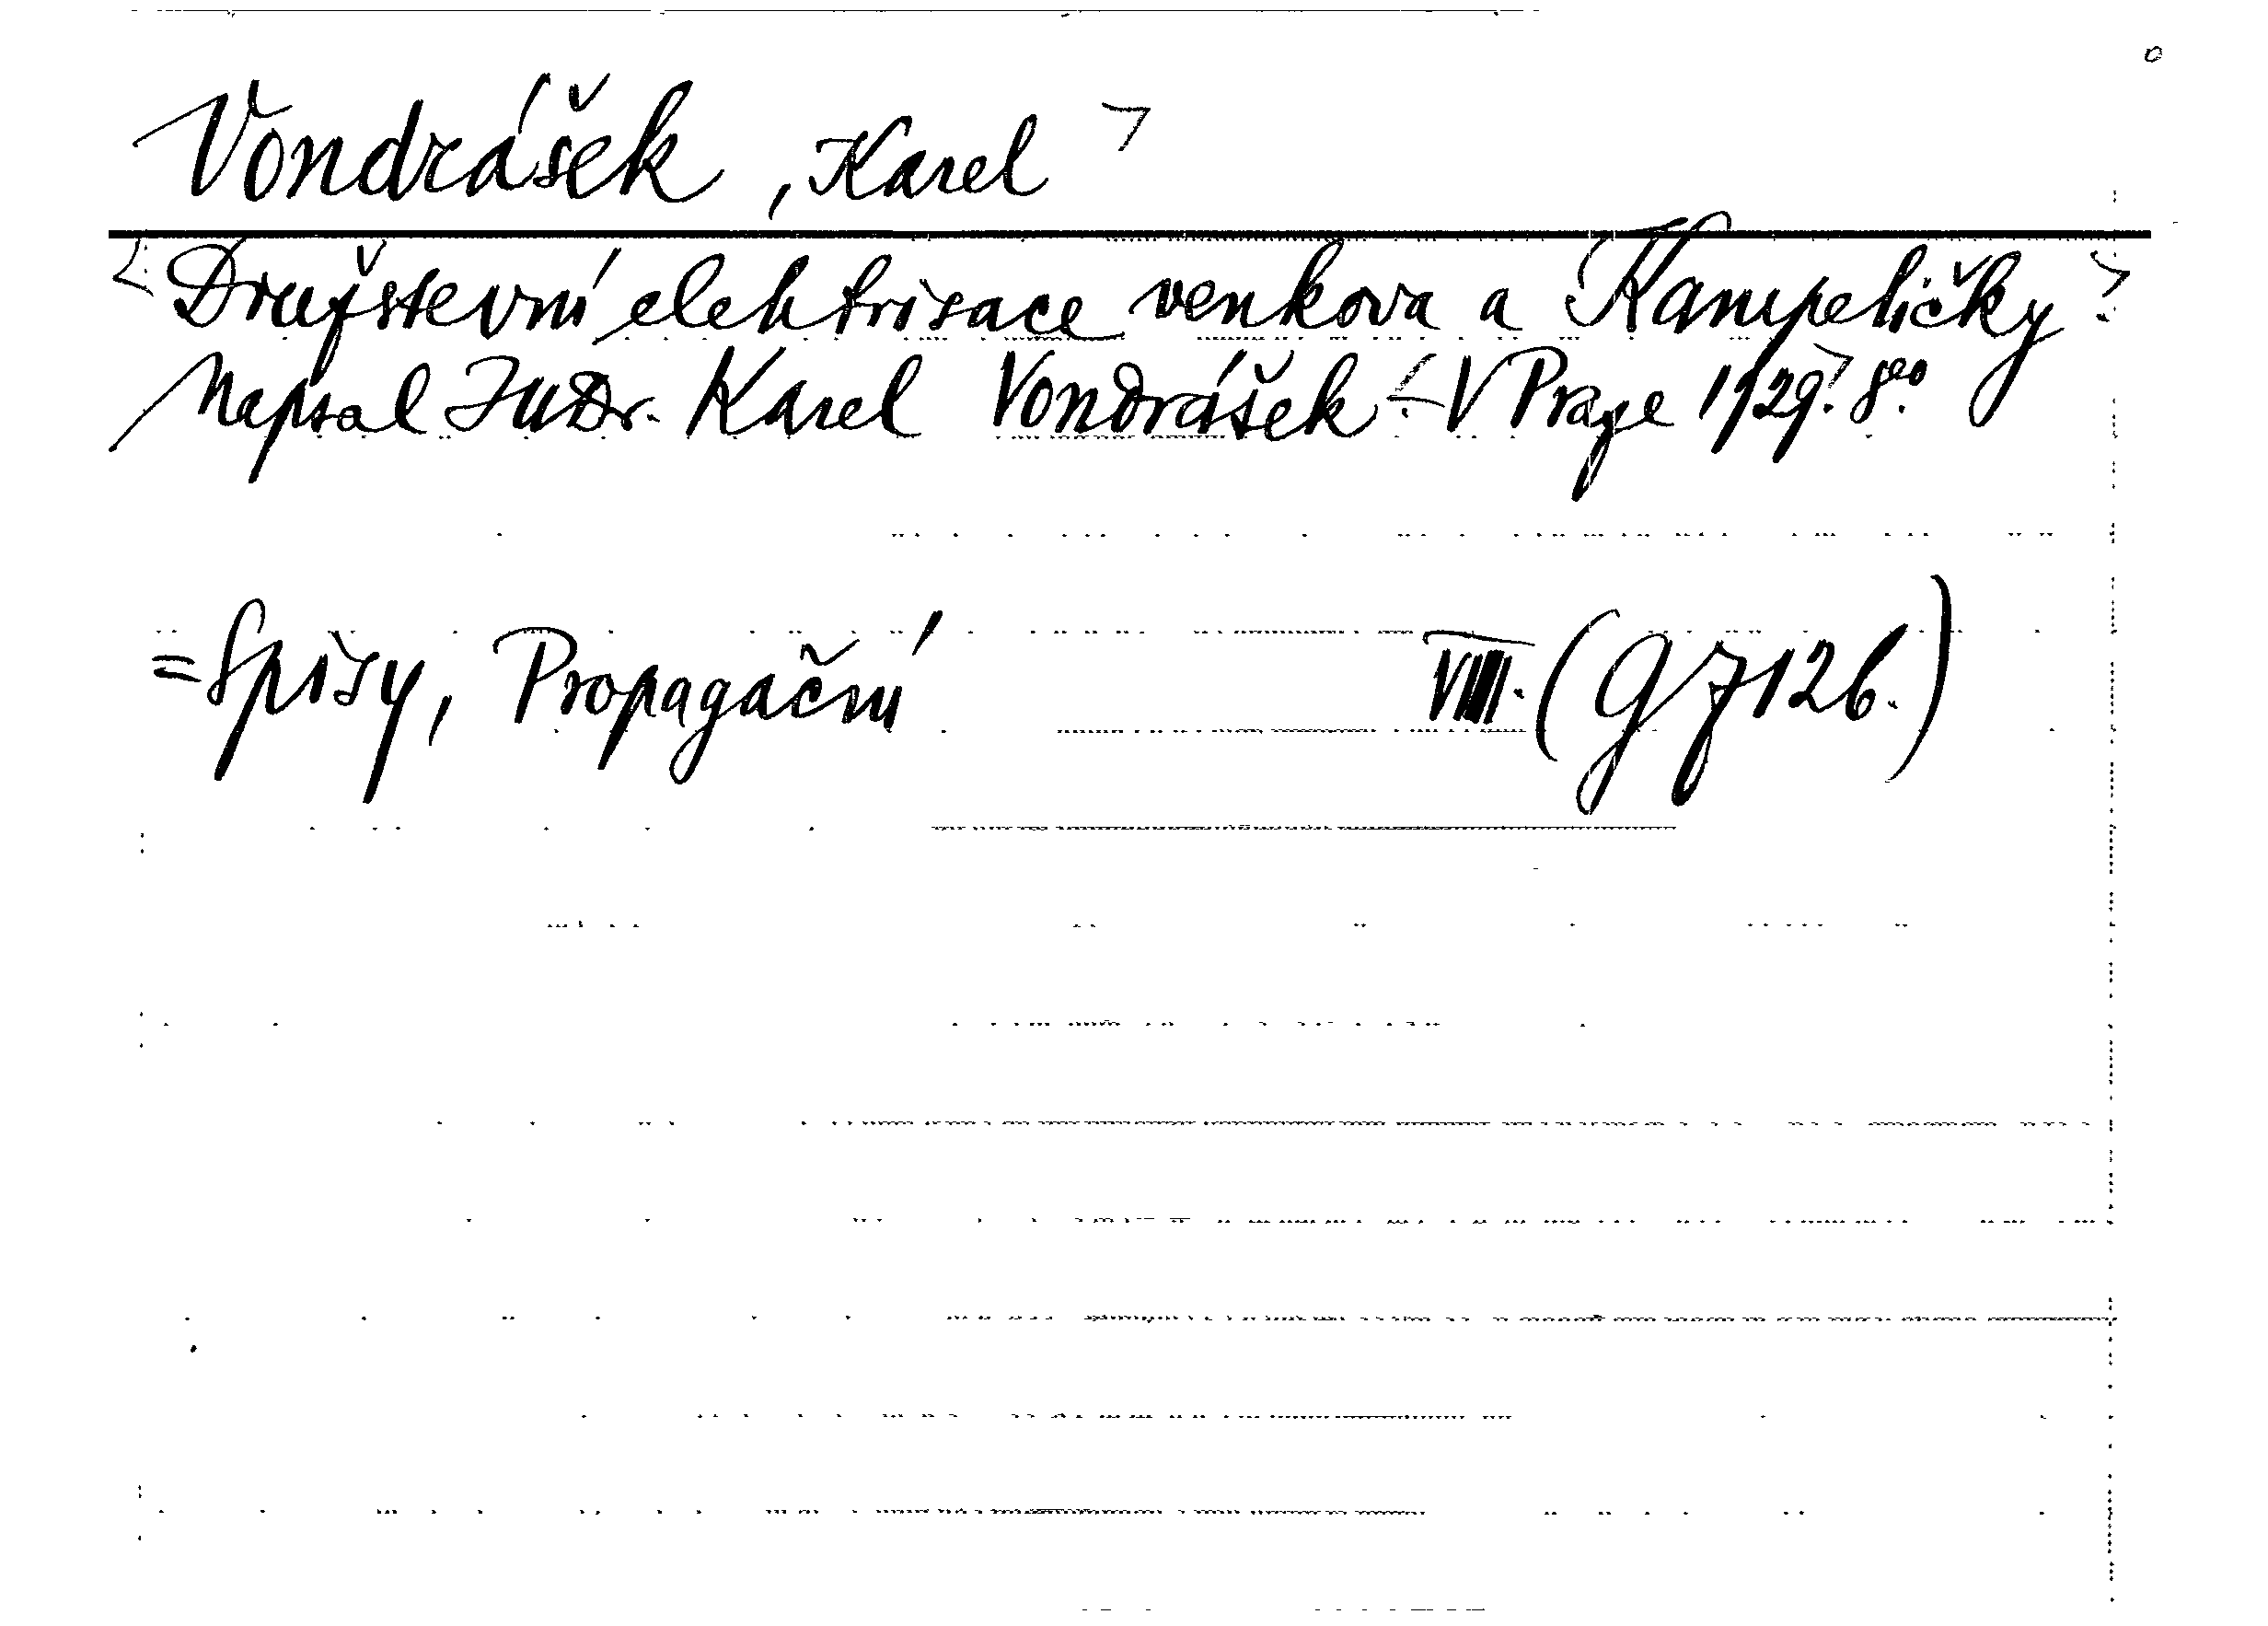 Vondrášek, Karel
Družstevní elektrisace venkova a Kampeličky.
Napsal JUDr. Karel Vondrášek. – V Praze 1929. 8º.
= Spisy, Propagační VIII. (G 7126.)